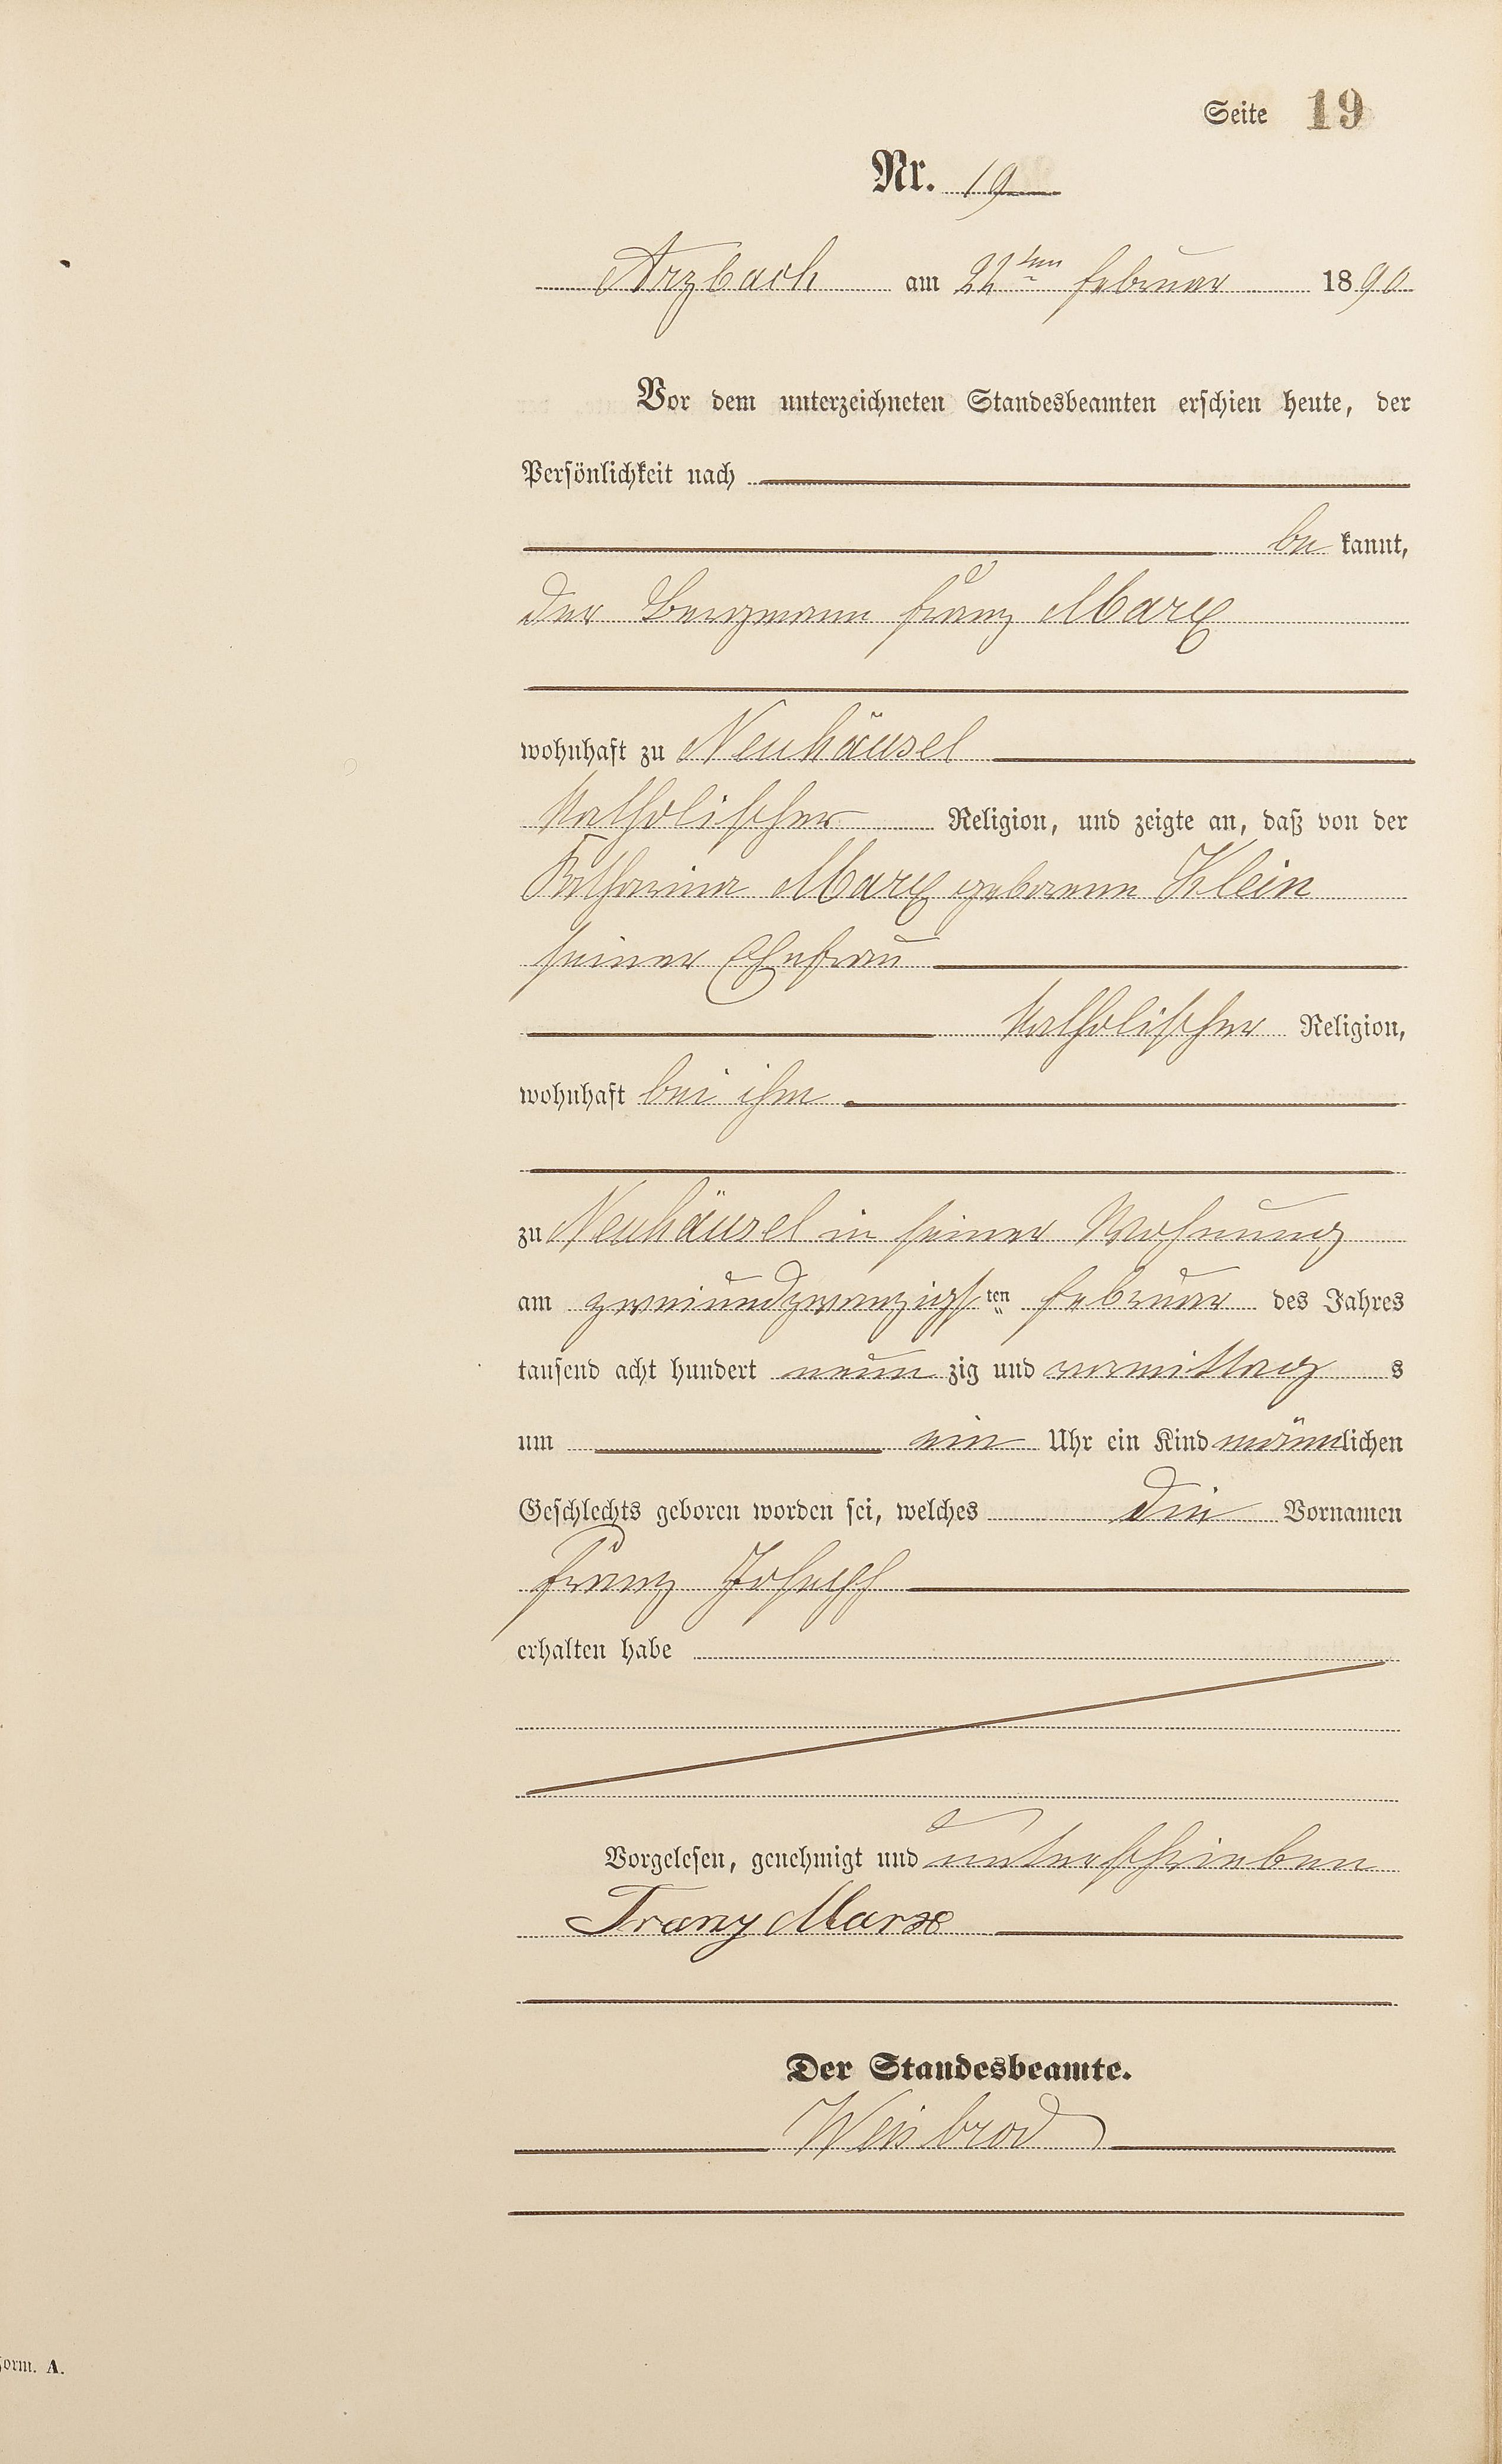 Seite 19
Nr. 19
Arzbach am 22ten Februar 1890
Vor dem unterzeichneten Standesbeamten erschien heute, der
Persönlichkeit nach
be kannt,
der Bergmann Franz Marx
wohnhaft zu Neuhäusel
katholischer Religion, und zeigte an, daß von der
Katharina Marx geborene Klein
seiner Ehefrau
katholischer Religion,
wohnhaft bei ihm
zu Neuhäusel in seiner Wohnung
am zweiundzwanzigsten Februar des Jahres
tausend acht hundert neun zig und vormittag s
um ein Uhr ein Kind männlichen
Geschlechts geboren worden sei, welches die Vornamen
Franz Joseph
erhalten habe
Vorgelesen, genehmigt und unterschrieben
Franz Marx
Der Standesbeamte.
Weisbrod
Form. A.